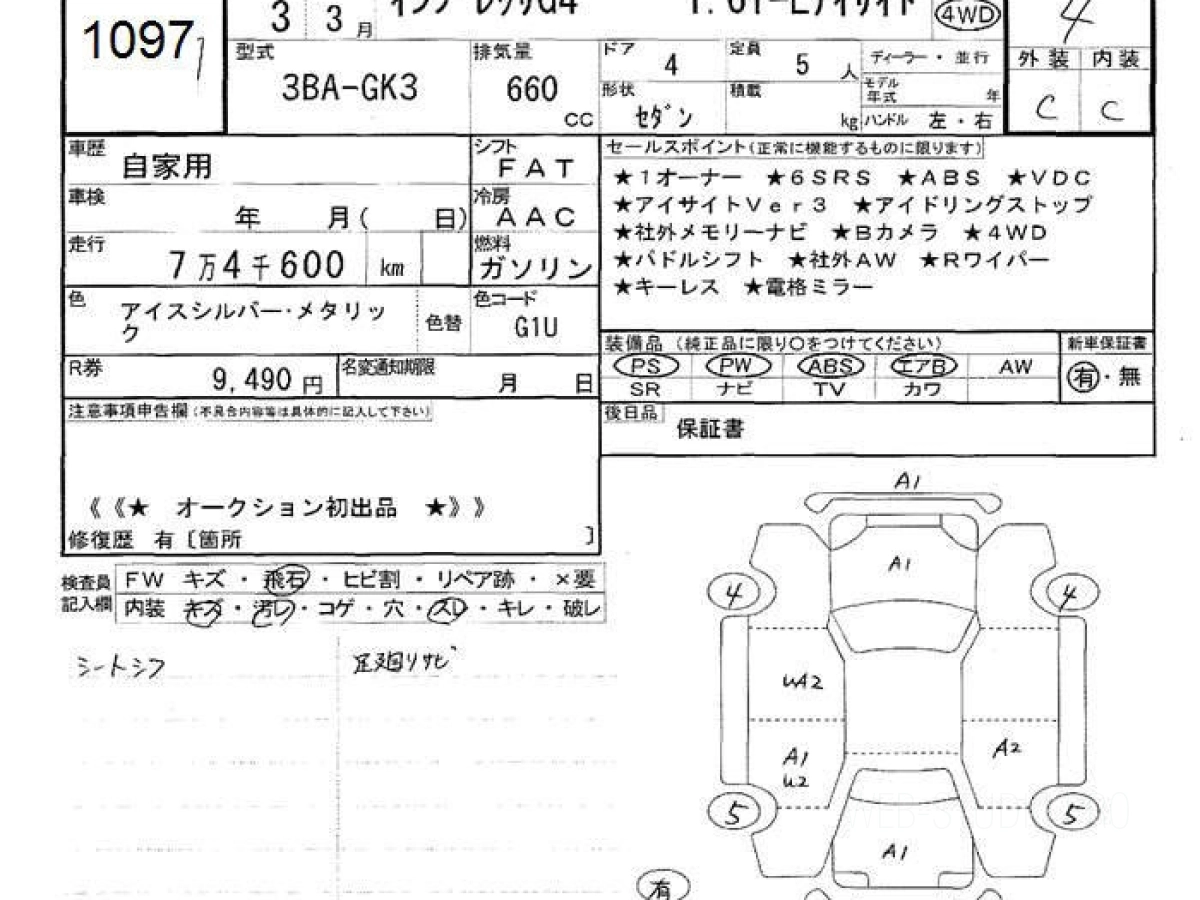 10977
3 3月
インプレッサG4
1.6i-Lアイサイト
4WD
4
型式
3BA-GK3
排気量
660
cc
ドア
4
定員
5 人
ディーラー・並行
形状
セダン
積載
kg
モデル年式
年
ハンドル 左・右
外装 内装
C C
車歴
自家用
シフト
FAT
車検
年 月( 日)
冷房
AAC
走行
7万4千600 km
燃料
ガソリン
色
アイスシルバー・メタリッ
ク
色替
色コード
G1U
R券
9,490 円
名変通知期限
月 日
セールスポイント(正常に機能するものに限ります)
★1オーナー ★6SRS ★ABS ★VDC
★アイサイトVer3 ★アイドリングストップ
★社外メモリーナビ ★Bカメラ ★4WD
★パドルシフト ★社外AW ★Rワイパー
★キーレス ★電格ミラー
装備品 (純正品に限り○をつけてください)
PS PW ABS エアB AW
SR ナビ TV カワ
新車保証書
有・無
後日品
保証書
注意事項申告欄(不具合内容等は具体的に記入して下さい)
《《★ オークション初出品 ★》》
修復歴 有〔箇所 〕
検査員
記入欄
FW キズ・飛石・ヒビ割・リペア跡・×要
内装 キズ・汚レ・コゲ・穴・スレ・キレ・破レ
シートシワ
足廻りサビ
A1
A1
4 4
UA2
A1
U2
A2
5 5
A1
有